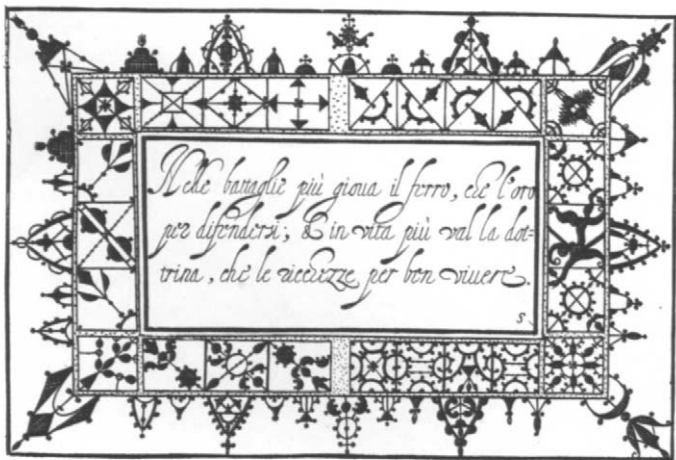 Nelle battaglie più gioua il ferro, che l'oro
per difendersi; & in vita più val la dot=
trina, che le ricchezze per ben viuere.
S